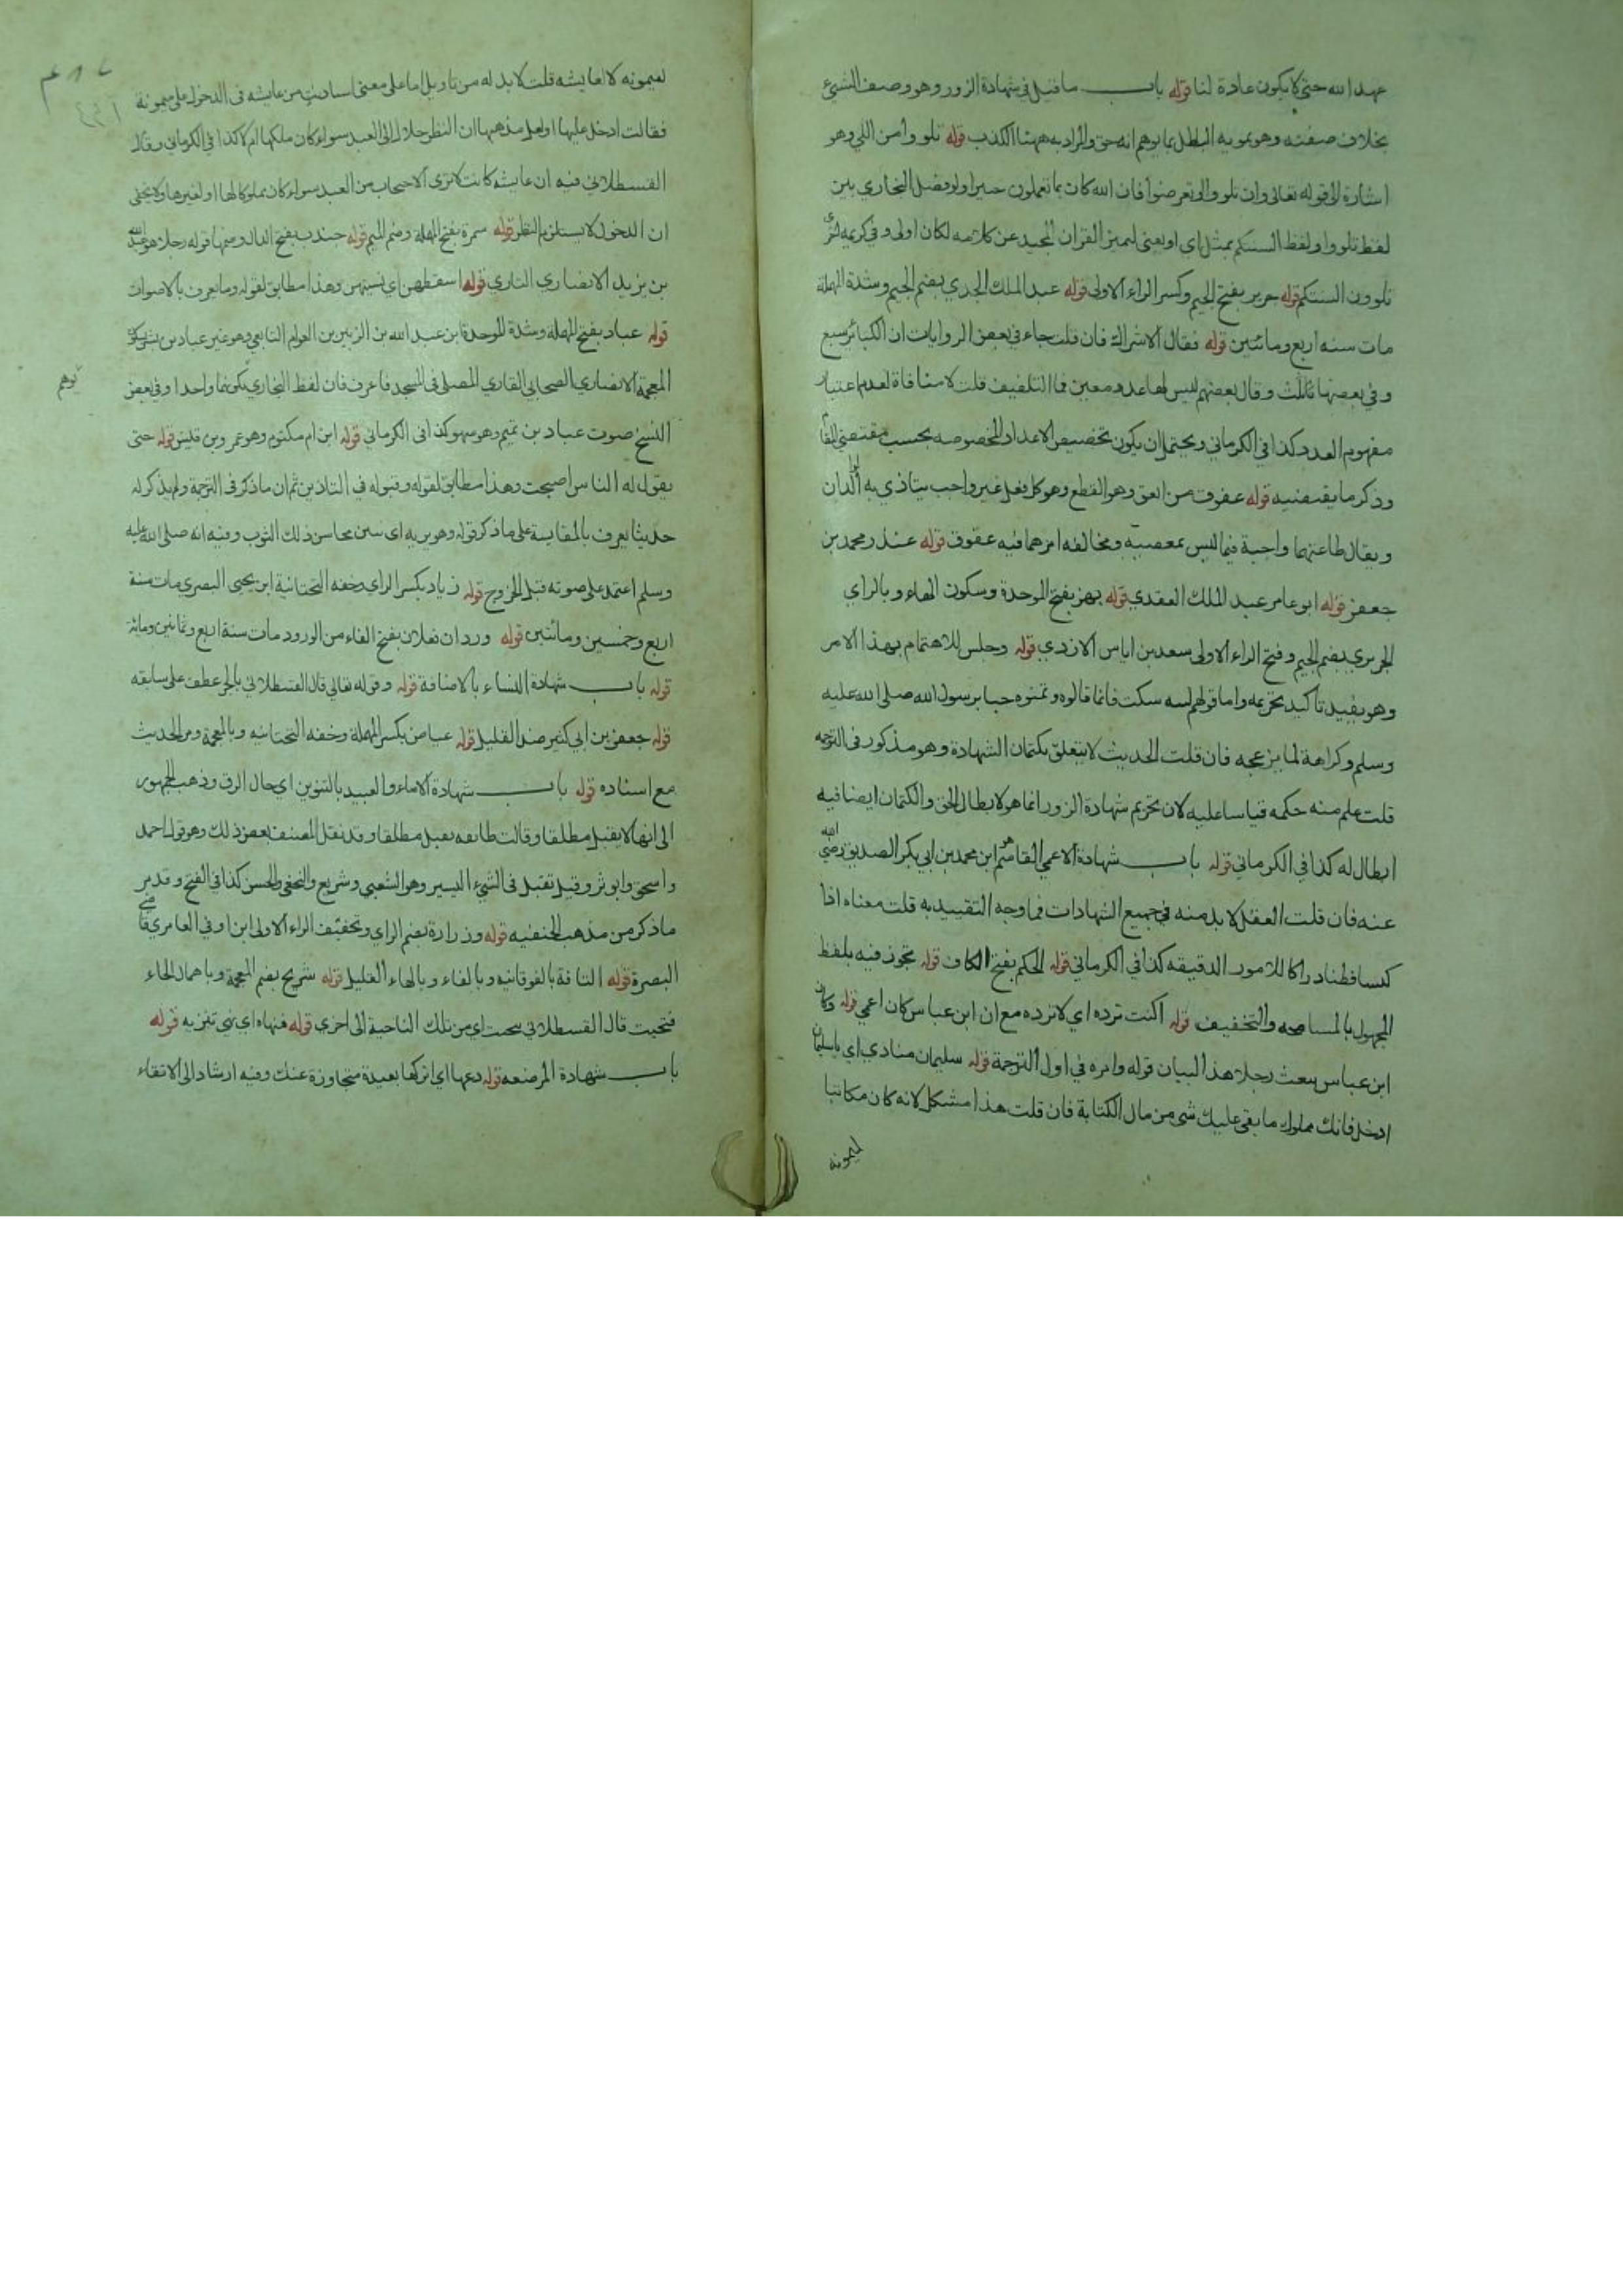 عهد الله حتى لا يكون عادة لنا قوله باب ما قيل في شهادة الزور وهو وصف الشيئ
بخلاف صفته وهو تمويه الباطل بما يوهم انه حق والمراد به ههنا الكذب قوله تلووا من اللي وهو
اشارة الى قوله تعالى وان تلووا او تعرضوا فان الله كان بما تعملون خبيرا ولو فصل البخاري بين
لفظ تلووا ولفظ السنتكم بمثل اي او يعنى ليميز القران المجيد عن كلامه لكان اولى وفي كريمة
تلوون السنتكم قوله جرير بفتح الجيم وكسر الراء الاولى قوله عبد الملك الجدي بضم الجيم وشدة المهملة
مات سنه اربع ومائتين قوله فقال الاشراك فان قلت جاء في بعض الروايات ان الكبائر سبع
وفي بعضها ثلث وقال بعضهم ليس لها عدد معين فما التلفيق قلت لا منافاة لعدم اعتبار
مفهوم العدد كذا في الكرماني ويحتمل ان يكون تخصيص الاعداد المخصوصه بحسب مقتضى المقام
وذكر ما يقتضيه قوله عقوق من العق وهو القطع وهو كل فعل غير واجب يتاذي به الوالدان
ويقال طاعتهما واجبة فيما ليس بمعصية ومخالفه امرهما فيه عقوق قوله غندر محمد بن
جعفر قوله ابو عامر عبد الملك العقدي قوله بهز بفتح الموحدة وسكون الهاء وبالزاي
الجريري بضم الجيم وفتح الراء الاولى سعد بن اياس الازدي قوله وجلس للاهتمام بهذا الامر
وهو يفيد تاكيد تحريمه واما قولهم ليته سكت فانما قالوه وتمنوه حبا برسول الله صلى الله عليه
وسلم وكراهة لما يزعجه فان قلت الحديث لا يتعلق بكتمان الشهادة وهو مذكور في الترجمه
قلت علم منه حكمه قياسا عليه لان تحريم شهادة الزور انما هو لابطال الحق والكتمان ايضا فيه
ابطال له كذا في الكرماني قوله باب شهادة الاعمي القاسم هو ابن محمد بن ابي بكر الصديق رضي الله
عنه فان قلت العقل لا بد منه في جميع الشهادات فما وجه التقييد به قلت معناه اذا
كيسا فطنا دراكا للامور الدقيقه كذا في الكرماني قوله الحكم بفتح الكاف قوله تجوز فيه بلفظ
المجهول بالمسامحه والتخفيف قوله اكنت ترده اي لا ترده مع ان ابن عباس كان اعمي قوله وكان
ابن عباس يبعث رجلا هذا البيان قوله وامره في اول الترجمة قوله سليمان منادي اي يا سليمان
ادخل فانك مملوك ما بقى عليك شي من مال الكتابة فان قلت هذا مشكل لانه كان مكاتبا
لميمونه
لميمونه لا لعايشه قلت لا بد له من تاويل اما على معنى استاذنت من عايشه في الدخول على ميمونة
فقالت ادخل عليها او لعل مذهبها ان النظر حلال الى العبد سواء كان ملكها ام لا كذا في الكرماني وقال
القسطلاني فيه ان عايشه كانت لا ترى الاحتجاب من العبد سواء كان مملوكا لها او لغيرها ولا يخفى
ان الدخول لا يستلزم النظر قوله سمرة بفتح المهملة وضم الميم قوله جندب بفتح الدال وضمها قوله رجلا هو عبد الله
بن يزيد الانصاري القاري قوله اسقطهن اي نسيتهن وهذا مطابق لقوله وما يعرف بالاصوات
قوله عباد بفتح المهملة وشدة الموحدة ابن عبد الله بن الزبير بن العوام التابعي وهو غير عباد بن بشر بكسر
المعجمة الانصاري الصحابي القاري المصلى في المسجد فاعرف فان لفظ البخاري يوهم كونهما واحدا وفي بعض
النسخ صوت عباد بن تميم وهو سهو كذا في الكرماني قوله ابن ام مكتوم وهو عمرو بن قيس قوله حتى
يقول له الناس اصبحت وهذا مطابق لقوله وقبوله في التاذين ثم ان ما ذكر في الترجمة ولم يذكر له
حديثا يعرف بالمقايسة على ما ذكر قوله وهو يريه اى يبين محاسن ذلك الثوب وفيه انه صلى الله عليه
وسلم اعتمد على صوته قبل الخروج قوله زياد بكسر الزاي وخفه التحتانية ابن يحيى البصري مات سنة
اربع وخمسين ومائتين قوله وردان فعلان بفتح الفاء من الورود مات سنة اربع وثمانين ومائة
قوله باب شهادة النساء بالاضافة قوله وقوله تعالى قال القسطلاني بالجر عطف على سابقه
قوله جعفر بن ابي كثير ضد القليل قوله عياض بكسر المهملة وخفه التحتانيه وبالمعجمة ومر الحديث
مع اسناده قوله باب شهادة الاماء والعبيد بالتنوين اي حال الرق وذهب الجمهور
الى انها لا يقبل مطلقا وقالت طائفه يقبل مطلقا وقد نقل المصنف بعض ذلك وهو قول احمد
واسحق وابو ثور وقيل تقبل في الشيء اليسير وهو الشعبي وشريح والنخعي والحسن كذا في الفتح وقد مر
ما ذكر من مذهب الحنفيه قوله وزرارة بضم الزاي وتخفيف الراء الاولى ابن اوفي العامري قاضي
البصرة قوله التافة بالفوقانيه وبالفاء وبالهاء القليل قوله شريح بضم المعجمة وباهمال الحاء
فتنحيت قال القسطلاني تنحيت اي من تلك الناحية الى اخري قوله فنهاه اي نهي تنزيه قوله
باب شهادة المرضعه قوله دعها اي اتركها بعيدة متجاوزة عنك وفيه ارشاد الى الاتقاء
يوهم